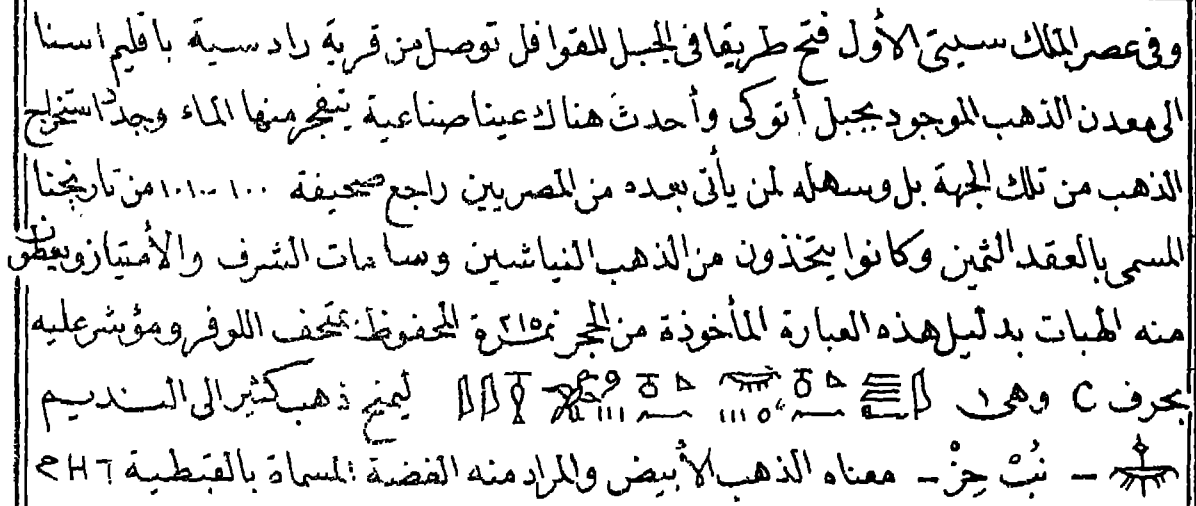 وفى عصر الملك سيتى الأول فتح طريقا فى الجبل للقوافل توصل من قرية رادسية باقليم اسنا
الى معدن الذهب الموجود بجبل أتوكى وأحدث هناك عينا صناعية يتفجر منها الماء وجدّد استخراج
الذهب من تلك الجهة بل وسهله لمن يأتى بعده من المصريين راجع صحيفة ١٠٠-١٠١ من تاريخنا
المسمى بالعقد الثمين وكانوا يتخذون من الذهب النياشين وسامات الشرف والأمتياز ويعطون
منه الهبات بدليل هذه العبارة المأخوذة من الحجر نمرة ٢١٥ المحفوظ بمتحف اللوفر ومؤشر عليه
بحرف C وهى ليمنح ذهب كثير الى النديم
– نُبْ حِزْ – معناه الذهب الأبيض والمراد منه الفضة المسماة بالقبطية